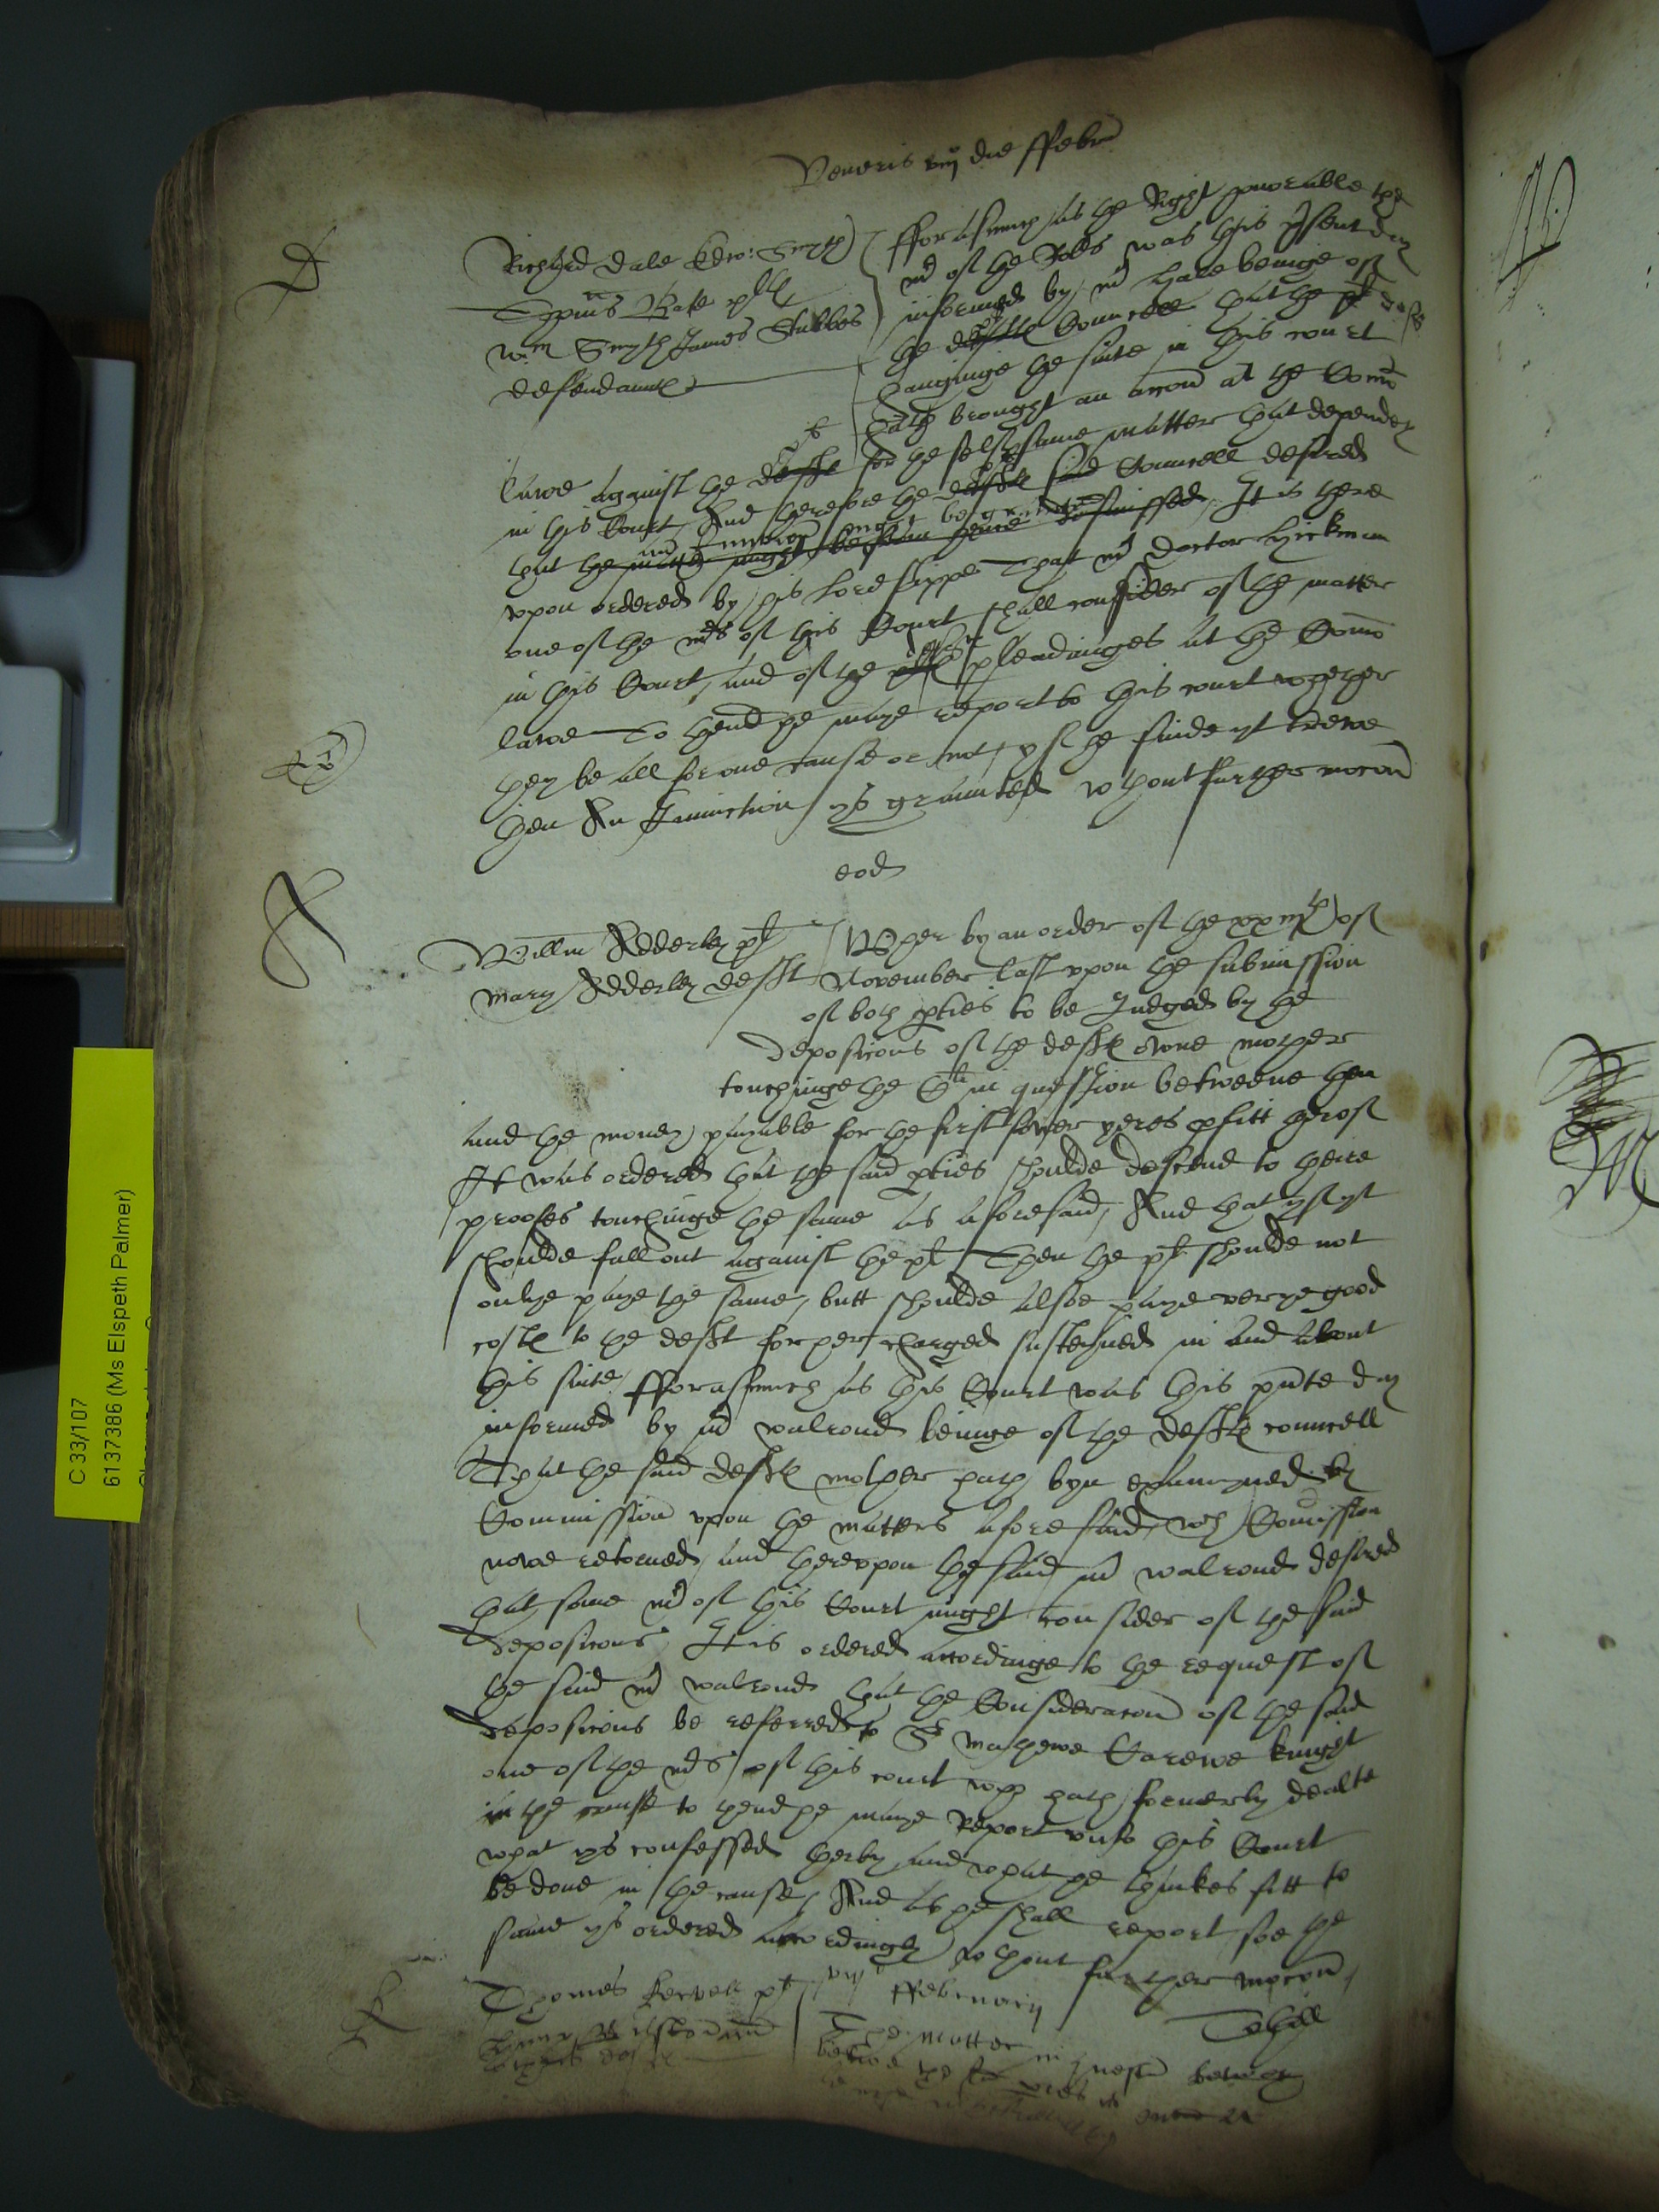 Veneris viij die ffebr
Richard Dale Edw: Smyth
Bate plts
Wm Smyth James Stubbes
defendauntes
fforasmuch as the Right honorable the
mr of the Rolls was this p̱sent day
informed by mr Hare beinge of
the Councell that the deftes
hanginge the suite in this court
hath brought an accon at the Comon
lawe against the plt for the selfsame matter that dependeth
in this Court And therefore the said Councell desired
that an Iniunction might be graunted the matter might be from hence dismissed, It is there
vpon ordered by his Lordshippe That mr Doctor Hickman
one of the mrs of this Court shall consider of the matter
in this Court, and of the pleadinges at the Comon
lawe To thend he maye report to this court whether
they be all for one cause or not, yf he finde yt trewe
then An Iniunction ys graunted wthout further mocon
eod
Willm Adderley plt
Mary Adderley deft
Wher by an order of the of
November last vpon the submission
of both p̱ties to be Iudged by the
deposicons of the deftes owne mother
touchinge the in question betweene them
and the money payable for the first fower yeres p̱fitt therof
It was ordered that the said p̱ties shoulde descend to their
proofes touchinge the same as aforesaid, And that yf yt
shoulde fall out against the plt Then the plt shoulde not
onlye paye the same, butt shoulde alsoe paye verye good
costes to the deft for her charges susteyned in and about
this suite, fforasmuch as this Court was this p̱nte day
informed by mr Walrond beinge of the deftes councell
That the said deftes mother hath byn examyned by
Commission vpon the matters aforesaid, wch Comission
nowe retorned, and therevpon the said mr Walrond desired
that some mr of this Court might consider of the said
deposicons, It is ordered accordinge to the request of
the said mr Walrond that the Consideracon of the said
deposicons be referred to Sr Mathewe Carewe knight
one of the mrs of this court wch hath formerly dealte
in the cause to thend he maye Report vnto this Court
what ys confessed therby and what he thinkes fitt to
be done in the cause, And as he shall report soe the
same ys ordered accordingly wthout further mocon,
Thomas plt
viij ffebruary
The matter in question betwen
C 33/107
6137386 (Ms Elspeth Palmer)